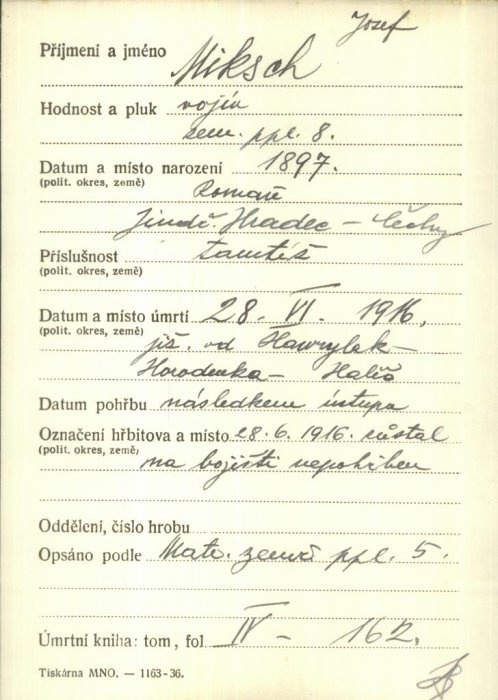 Josef
Příjmení a jméno Miksch
Hodnost a pluk vojín
zem. ppl. 8.
Datum a místo narození 1897.
(polit. okres, země)
Jindř. Hradec – Čechy
Příslušnost tamtéž
(polit. okres, země)
Datum a místo úmrtí 28. VI. 1916.
(polit. okres, země)
již. od Hawrylak –
Horodenka – Halič
Datum pohřbu následkem ústupu
Označení hřbitova a místo 28. 6. 1916. zůstal
(polit. okres, země)
na bojišti nepohřben
Oddělení, číslo hrobu
Opsáno podle Matr. zemř. ppl. 5.
Úmrtní kniha: tom, fol IV – 162.
Tiskárna MNO. — 1163-36.